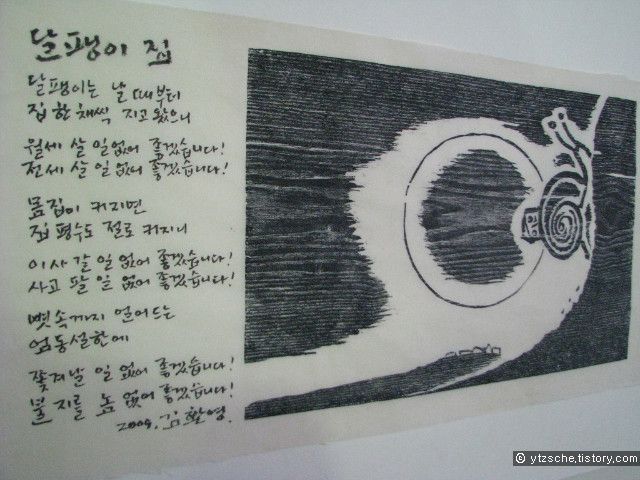 달팽이 집
달팽이는 날 때부터
집 한 채씩 지고 왔으니
월세 살 일 없어 좋겠습니다!
전세 살 일 없어 좋겠습니다!
몸집이 커지면
집 평수도 절로 커지니
이사 갈 일 없어 좋겠습니다!
사고 팔 일 없어 좋겠습니다!
뼛속까지 얼어드는
엄동설한에
쫓겨날 일 없어 좋겠습니다!
불 지를 놈 없어 좋겠습니다!
2009. 김환영.
© ytzsche.tistory.com